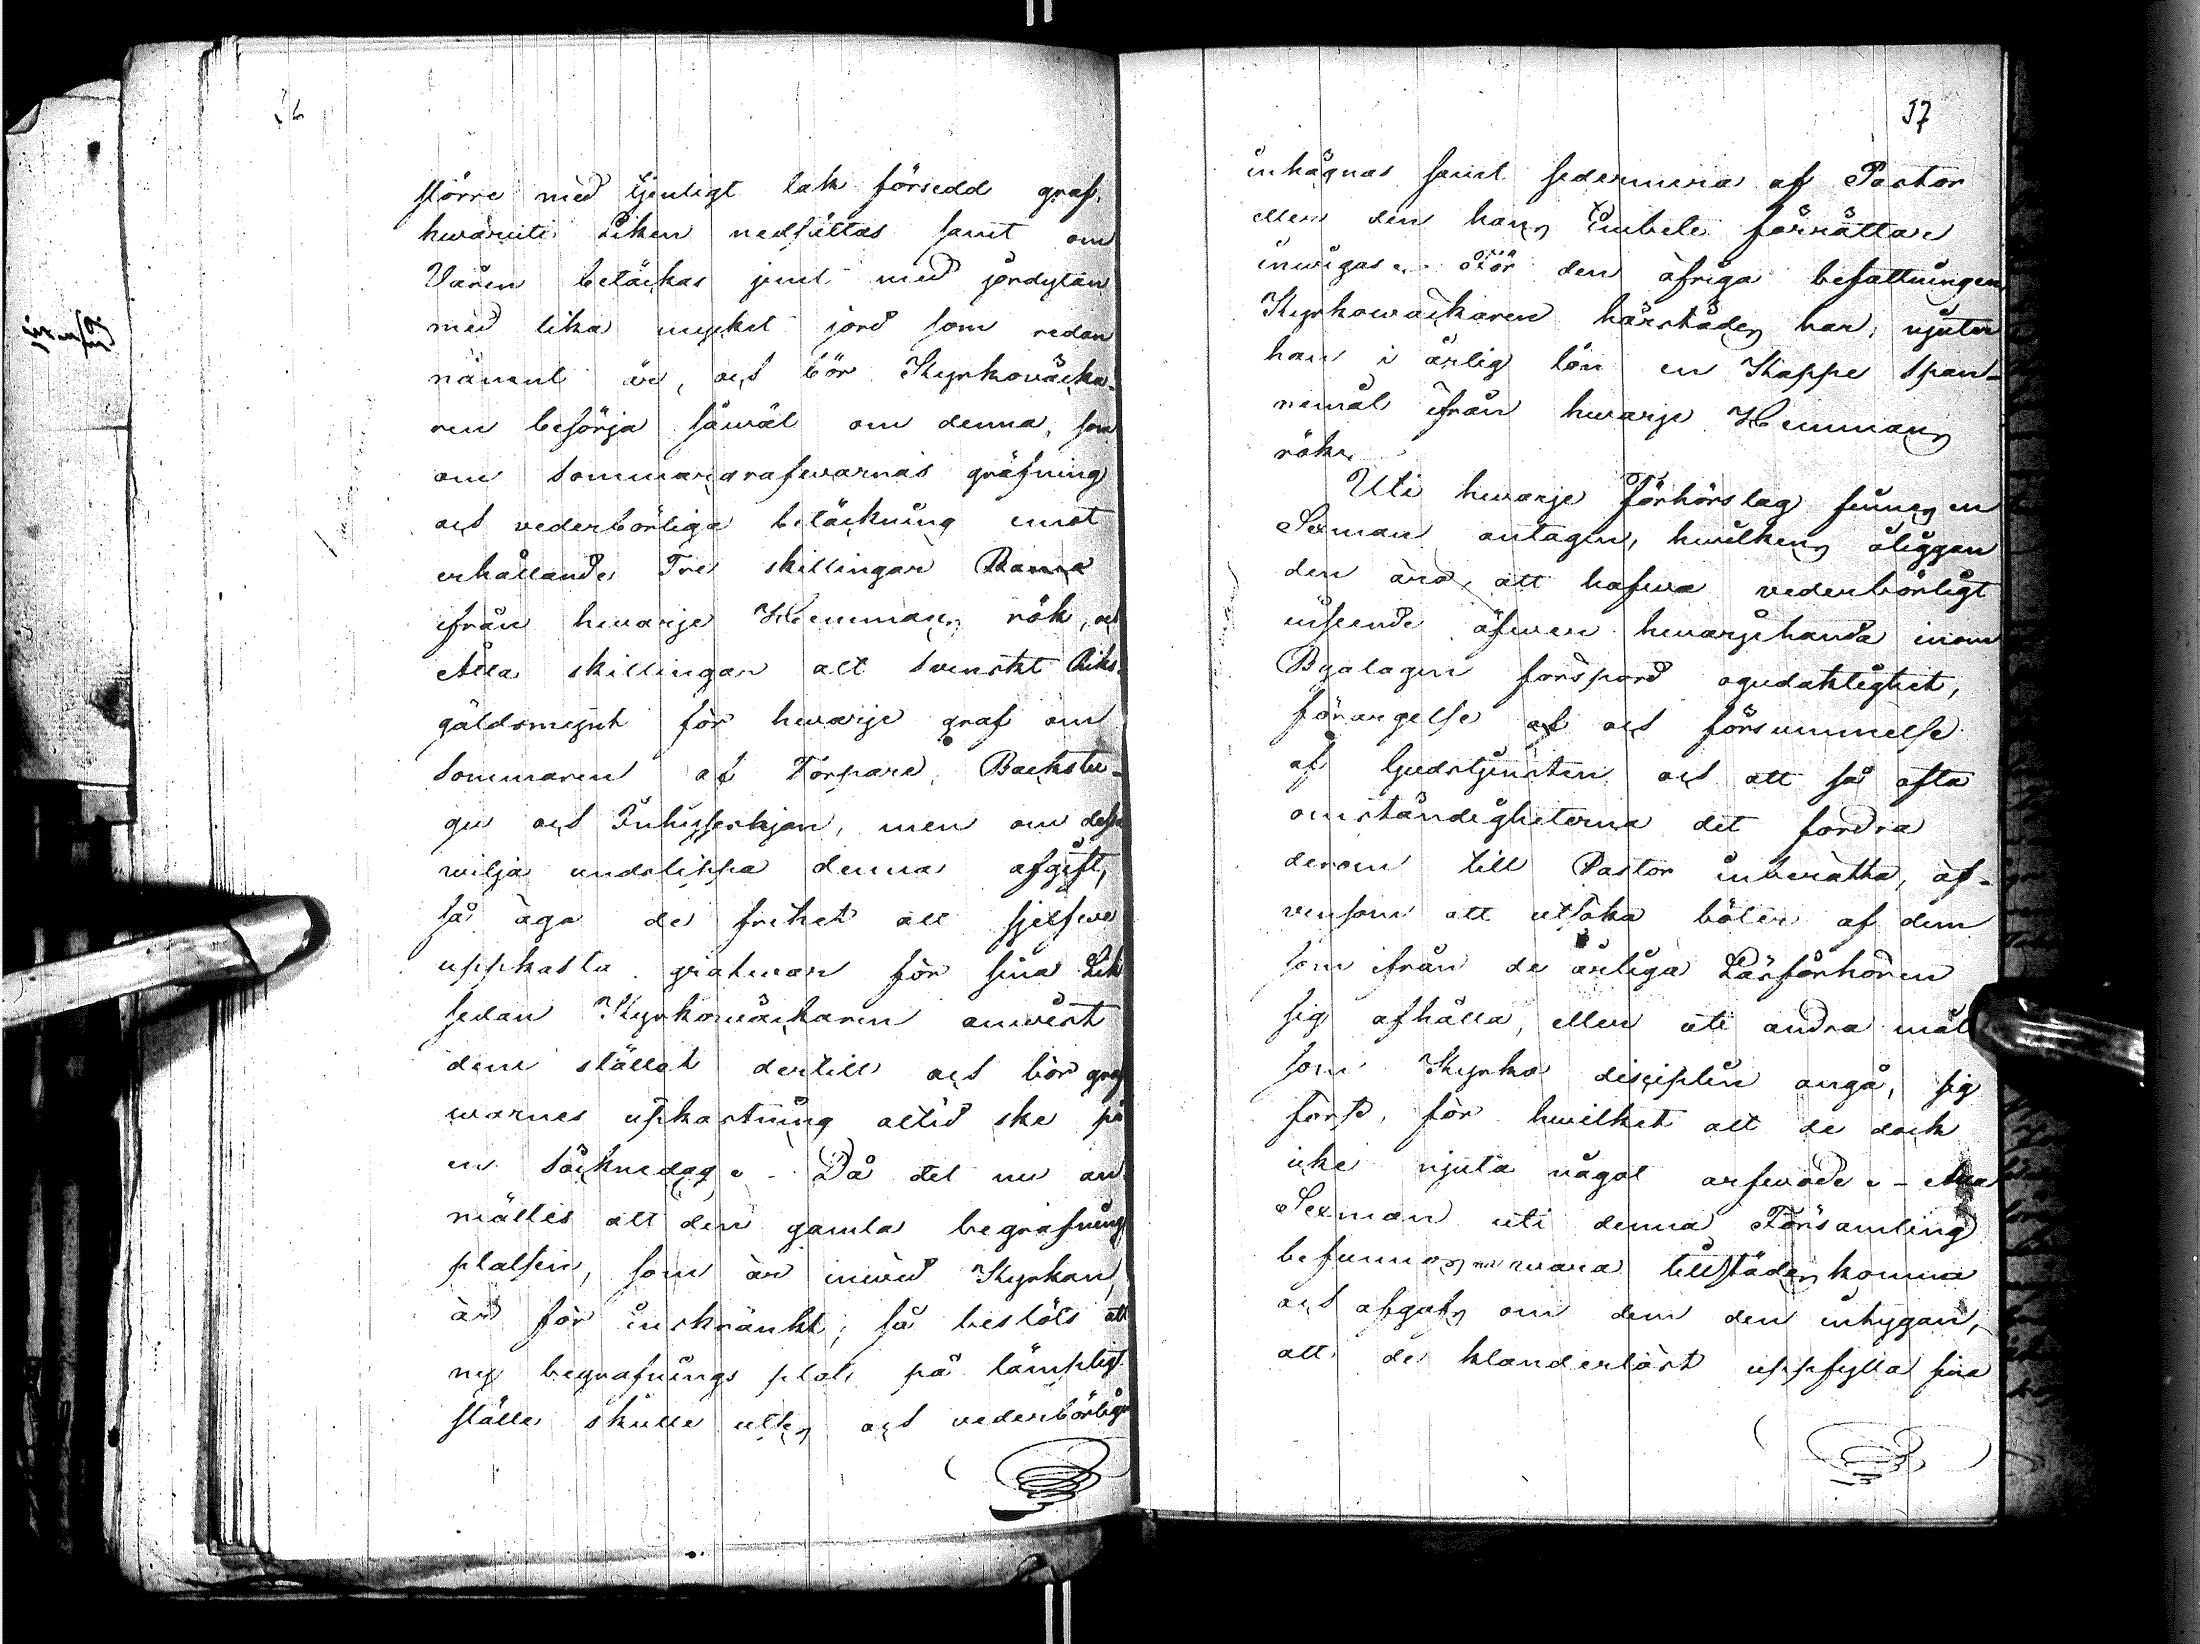 större med tjenligt tak försedd graf,
hwaruti Liken nedsättas samt om
Våren betäckas jemt med jordytan
med lika mycket jord som redan
nämnt är, och bör Kyrkowäcka-
ren besörja såwäl om denna, som
om Sommargrafwarnas gräfning
och vederbörliga betäckning emot
erhållande Tre skillingar Banco
ifrån hwarje Hemmans rök, och
Åtta skillingar alt Svenskt Riks-
gäldsmynt för hwarje graf om
Sommaren af Torpare, Backstu-
gu och Inhyseshjon, men om dessa
wilja undslippa denna afgift,
så äga de frihet att sjelfwe
uppkasta grafwar för sina Lik
sedan Kyrkowäckaren anwist
dem stället dertill och bör graf
warnes upkastning altid ske på
en Söcknedag. Då det nu an
mältes att den gamla begrafnings
platsen, som är inwid Kyrkan,
är för inskränkt; så beslöts att
ny begrafnings plats på lämpligt
ställe skulle utses och vederbörligen
37
inhägnas samt sedermera af Pastor
eller den hans Embete förrättar
inwigas. För den öfriga befattningen
Kyrkowäckaren härstädes har, njuter
han i årlig lön en Kappe Span-
nemål ifrån hwarje Hemmans
röke.
Uti hwarje Förhörslag finnes en
Sexman antagen, hwilkens åliggan
den äro, att hafwa vederbörligt
inseende öfwer hwarjehanda inom
Byalagen försport ogudaktighet,
förargelse och försummelse
af Gudstjensten och att så ofta
omständigheterna det fordra
derom till Pastor inberätta, äf-
wensom att utsöka böter af dem
som ifrån de årliga Läsförhören
sig afhålla, eller uti andra mål
som Kyrko disciplin angå, sig
förse, för hwilket alt de dock
icke njuta något arfwode. - Alla
Sexman uti denna Församling
befunnos wara tillstädes komne
och afgafs om dem den intygan,
att de klanderlöst uppfylla sina